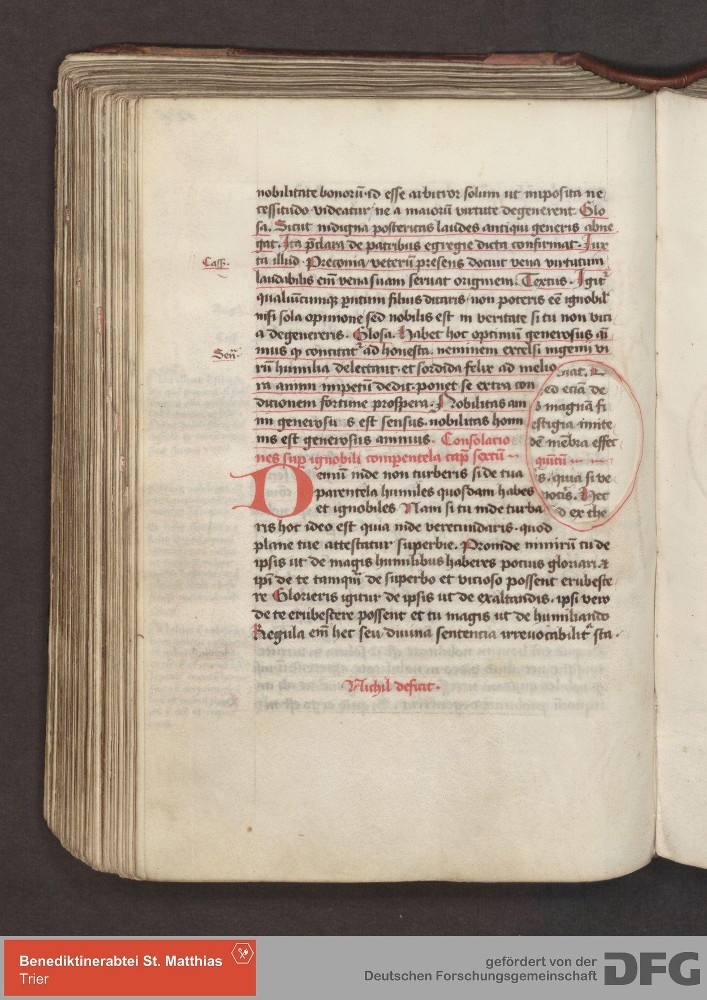 nobilitate bonorū· id esse arbitror solum ut imposita ne
cessitudo videatur/ ne a maiorū virtute degenerent Glo
sa. Sicut indigna posteritas laudes antiqui generis abne
gat. Ita p̄clara de patribus egregie dicta confirmat. Iux
Cass·
ta illud· Preconia/ veterū presens docuit vena virtutum
laudabilis em̄ vena suam seruat originem. Textus. Igit᷑
qualiūcumqꝫ parentum filius dicaris/ non poteris eē ignobil᷑
nisi sola opinione sed nobilis est in veritate si tu non vici
a degenereris. Glosa. Habet hoc optimū generosus ai᷑
Señ·
mus ꝙ concitat᷑ ad honesta. neminem excelsi ingenii vi
rū humilia delectant· et sordida felix ad melio
ra animi impetū dedit· ponet se extra con
dicionem fortune prospera. Nobilitas am
mi generosus est sensus. nobilitas homi
nis est generosus animus. Consolacio
nes sup̄ ignobili comparentela cap̄ sextū
Demū inde non turberis si de tua
parentela humiles quosdam habes
et ignobiles Nam si tu inde turba
ris hoc ideo est quia inde verecundaris. quod
plane tue attestatur superbie. Proinde nimirū tu de
ipsis ut de magis humilibus haberes pocius gloriari. ⁊
ip̄i de te tamquā de superbo et vicioso possent erubesce
re Glorieris igitur de ipsis ut de exaltandis. ipsi vero
de te erubescere possent et tu magis ut de humiliando
Regula em̄ hec seu diuina sentencia irreuocabilit᷑ sta·
ciat.
ed eciā de
magnā fi
estigia imite
dē mēbra effec
quintū
s. quia si ve
nocis. Nec
d ex the
Nichil deficit·
Benediktinerabtei St. Matthias
Trier
gefördert von der
Deutschen Forschungsgemeinschaft
DFG